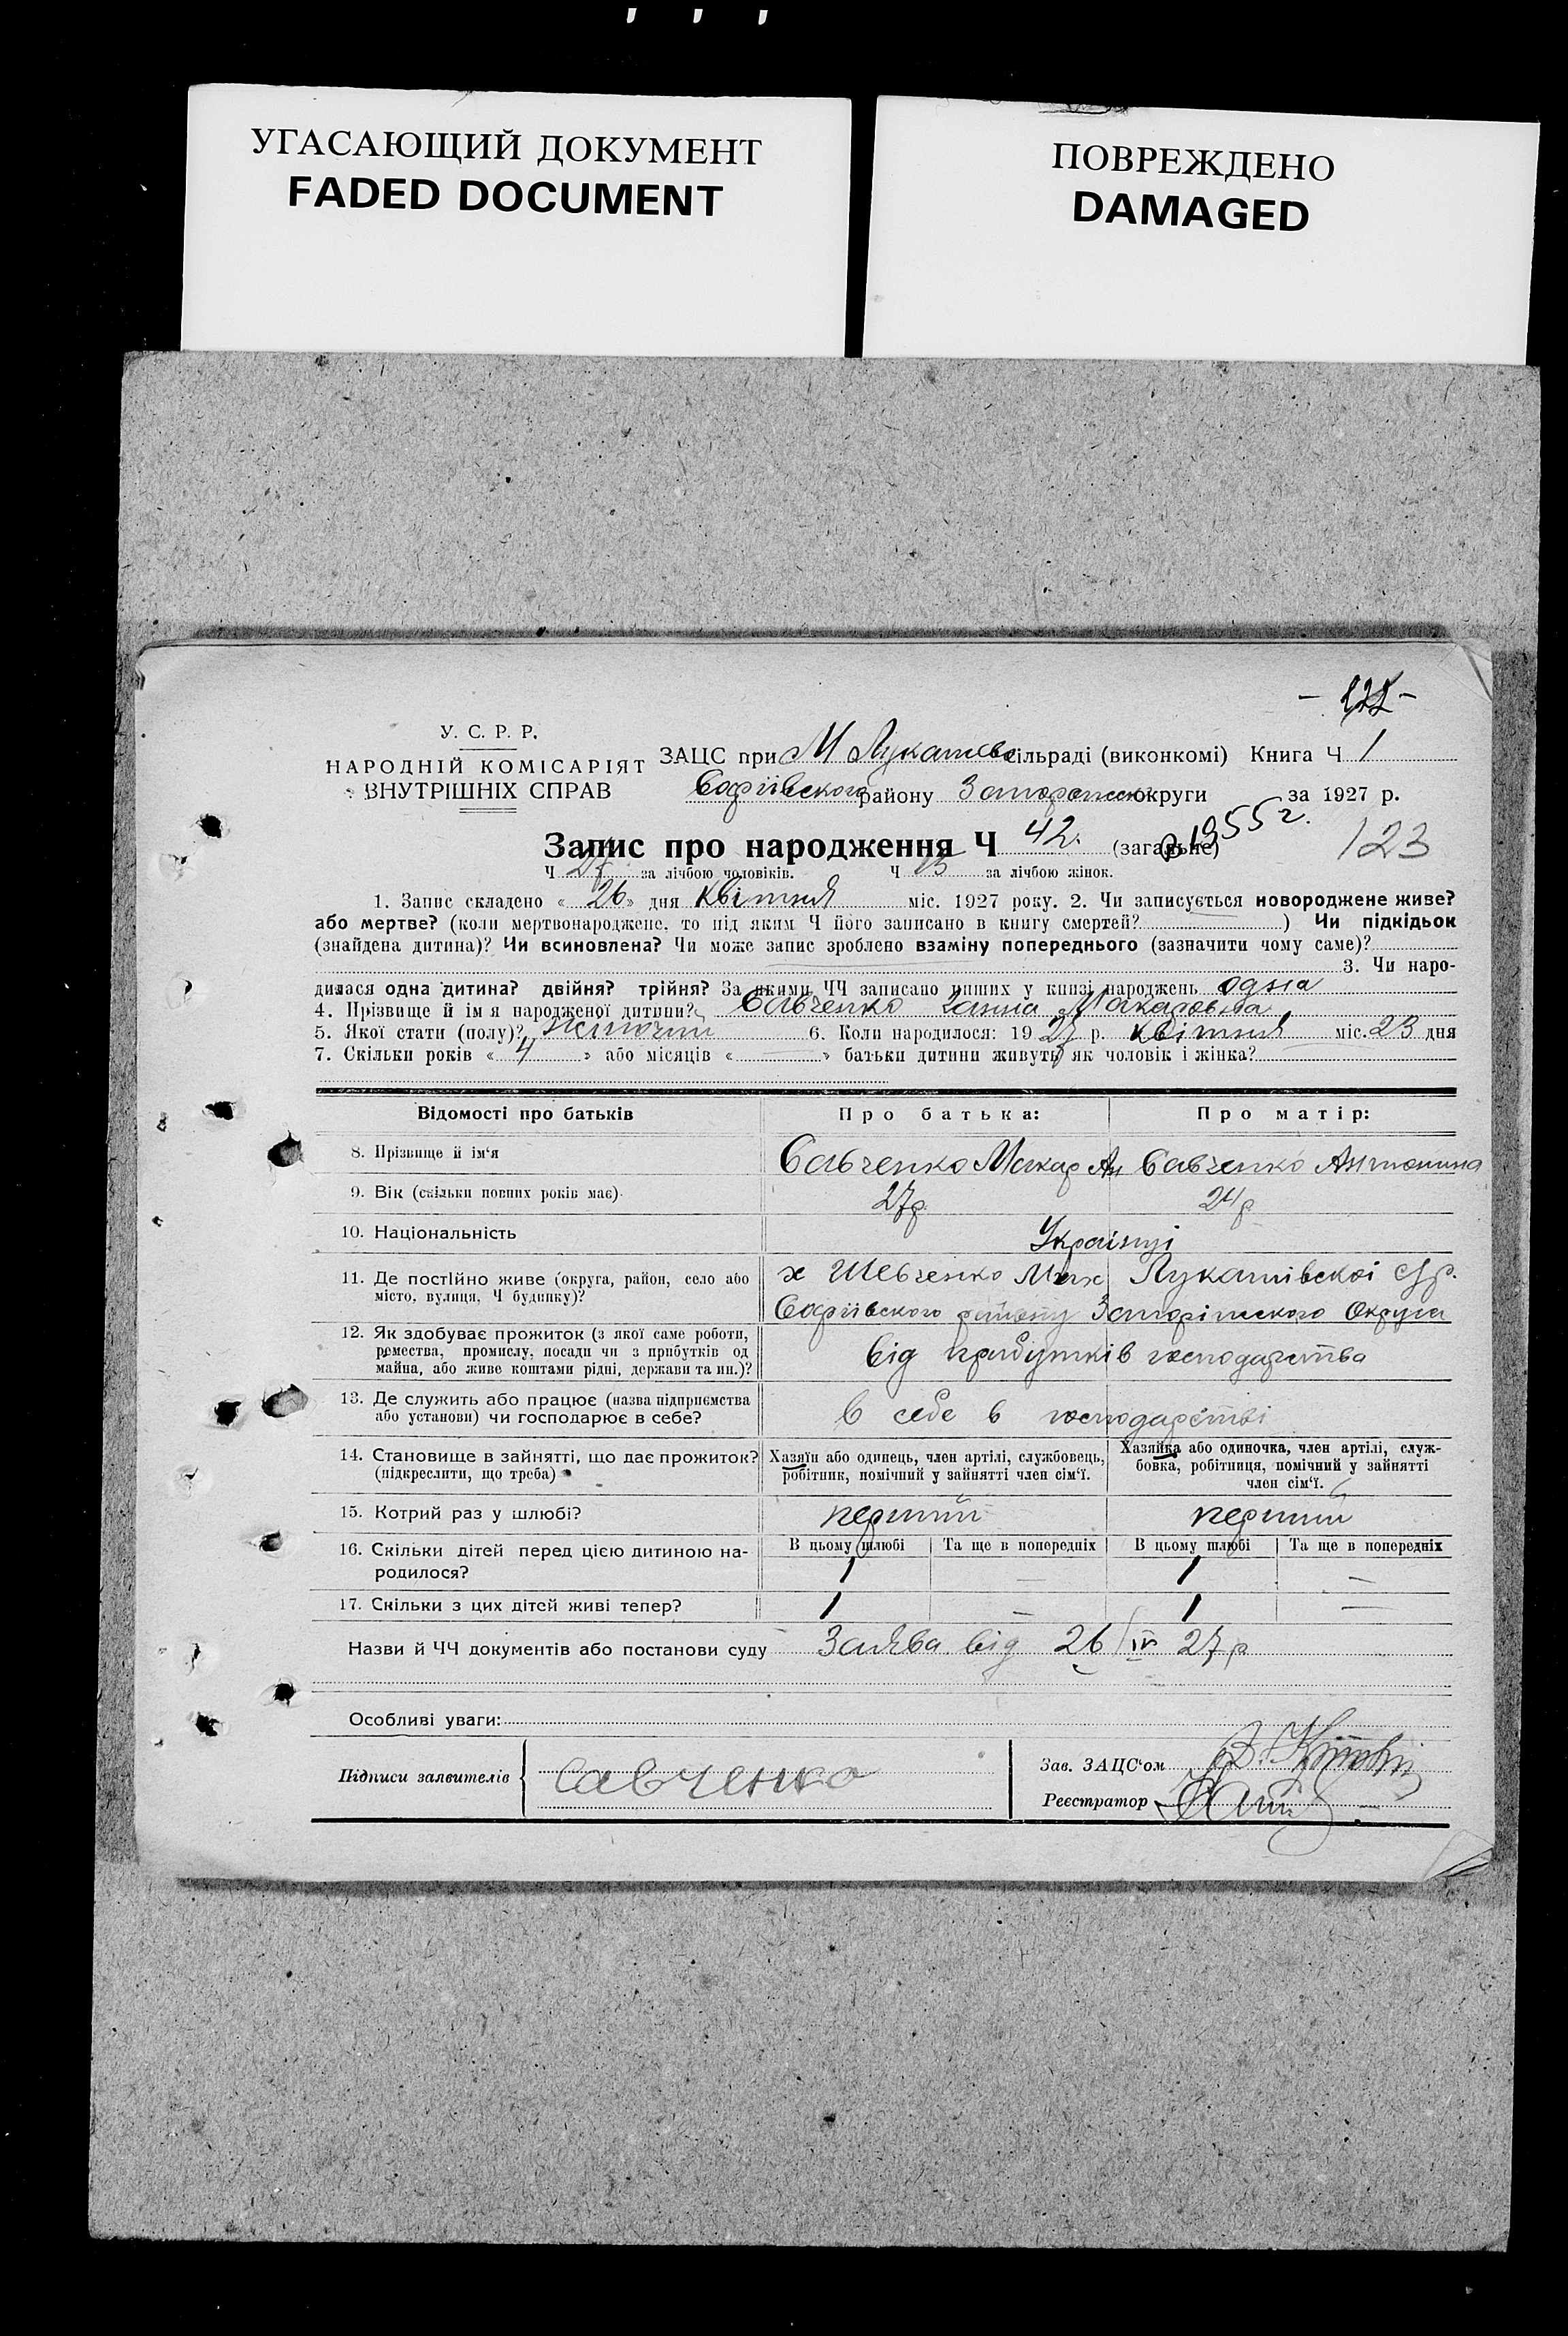 УГАСАЮЩИЙ ДОКУМЕНТ
FADED DOCUMENT
ПОВРЕЖДЕНО
DAMAGED
У. С. Р. Р.
НАРОДНІЙ КОМІСАРІЯТ
ВНУТРІШНІХ СПРАВ
ЗАЦС при М Лукашевс сільраді (виконкомі) Книга Ч 1
Софіївского району Запоріжськ округи за 1927 р.
Запис про народження Ч 42. (загальне)
1955 г.
123
Ч 27 за лічбою чоловіків. Ч 15 за лічбою жінок.
1. Запис складено « 26 » дня Квітня міс. 1927 року. 2. Чи записується новороджене живе?
або мертве? (коли мертвонароджене, то під яким Ч його записано в книгу смертей? ) Чи підкідьок
(знайдена дитина)? Чи всиновлена? Чи може запис зроблено взаміну попереднього (зазначити чому саме)?
3. Чи наро-
дилася одна дитина? двійня? трійня? За якими ЧЧ записано инших у книзі народжень одна
4. Прізвище й ім я народженої дитини? Савченко Ганна Макаровна
5. Якої стати (полу)? жиночий 6. Коли народилося: 19 27 р. квітня міс. 23 дня
7. Скільки років « 4 » або місяців « — » батьки дитини живуть як чоловік і жінка? —
Відомості про батьків Про батька: Про матір:
8. Прізвище й ім‘я Савченко Макар Ан Савченко Антонина
9. Вік (скільки повних років має) 27р. 24р
10. Національність Українці
11. Де постійно живе (округа, район, село або х Шевченко Мих Лукашівскоі с/р.
місто, вулиця, Ч будинку)? Софіівского району Запоріжского Округа
12. Як здобуває прожиток (з якої саме роботи,
ремества, промислу, посади чи з прибутків од від прибутків господарства
майна, або живе коштами рідні, держави та ин.)?
13. Де служить або працює (назва підприємства в себе в господарстві
або установи) чи господарює в себе?
14. Становище в зайнятті, що дає прожиток? Хазяїн або одинець, член артілі, службовець, Хазяйка або одиночка, член артілі, служ-
(підкреслити, що треба) робітник, помічний у зайнятті член сім‘ї. бовка, робітниця, помічний у зайнятті
член сім‘ї.
15. Котрий раз у шлюбі? перший перший
16. Скільки дітей перед цією дитиною на- В цьому шлюбі Та ще в попередніх В цьому шлюбі Та ще в попередніх
родилося? 1 — 1 —
17. Скільки з цих дітей живі тепер? 1 — 1 —
Назви й ЧЧ документів або постанови суду Заява від 26/IV 27 р
Особливі уваги:
Підписи заявителів Савченко
Зав. ЗАЦС‘ом
Реєстратор